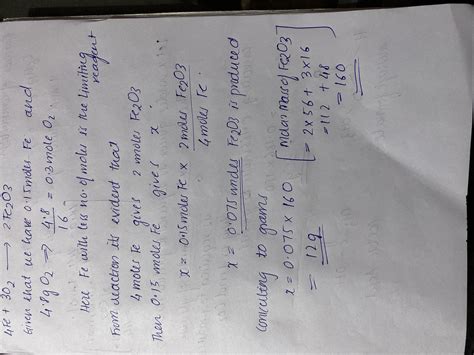 4Fe + 3O2 → 2Fe2O3
Given that we have 0.15 moles Fe and
4.8g O2 ⇒ 4.8/16 = 0.3 mole O2.
Here Fe with less no. of moles is the limiting
reagent
From reaction its evident that
4 moles Fe gives 2 moles Fe2O3
Then 0.15 moles Fe gives x.
x = 0.15 moles Fe × 2 moles Fe2O3 / 4 moles Fe.
x = 0.075 moles Fe2O3 is produced
Converting to grams
x = 0.075 × 160
= 12g
[Molar mass of Fe2O3
= 2×56 + 3×16
= 112 + 48
= 160]